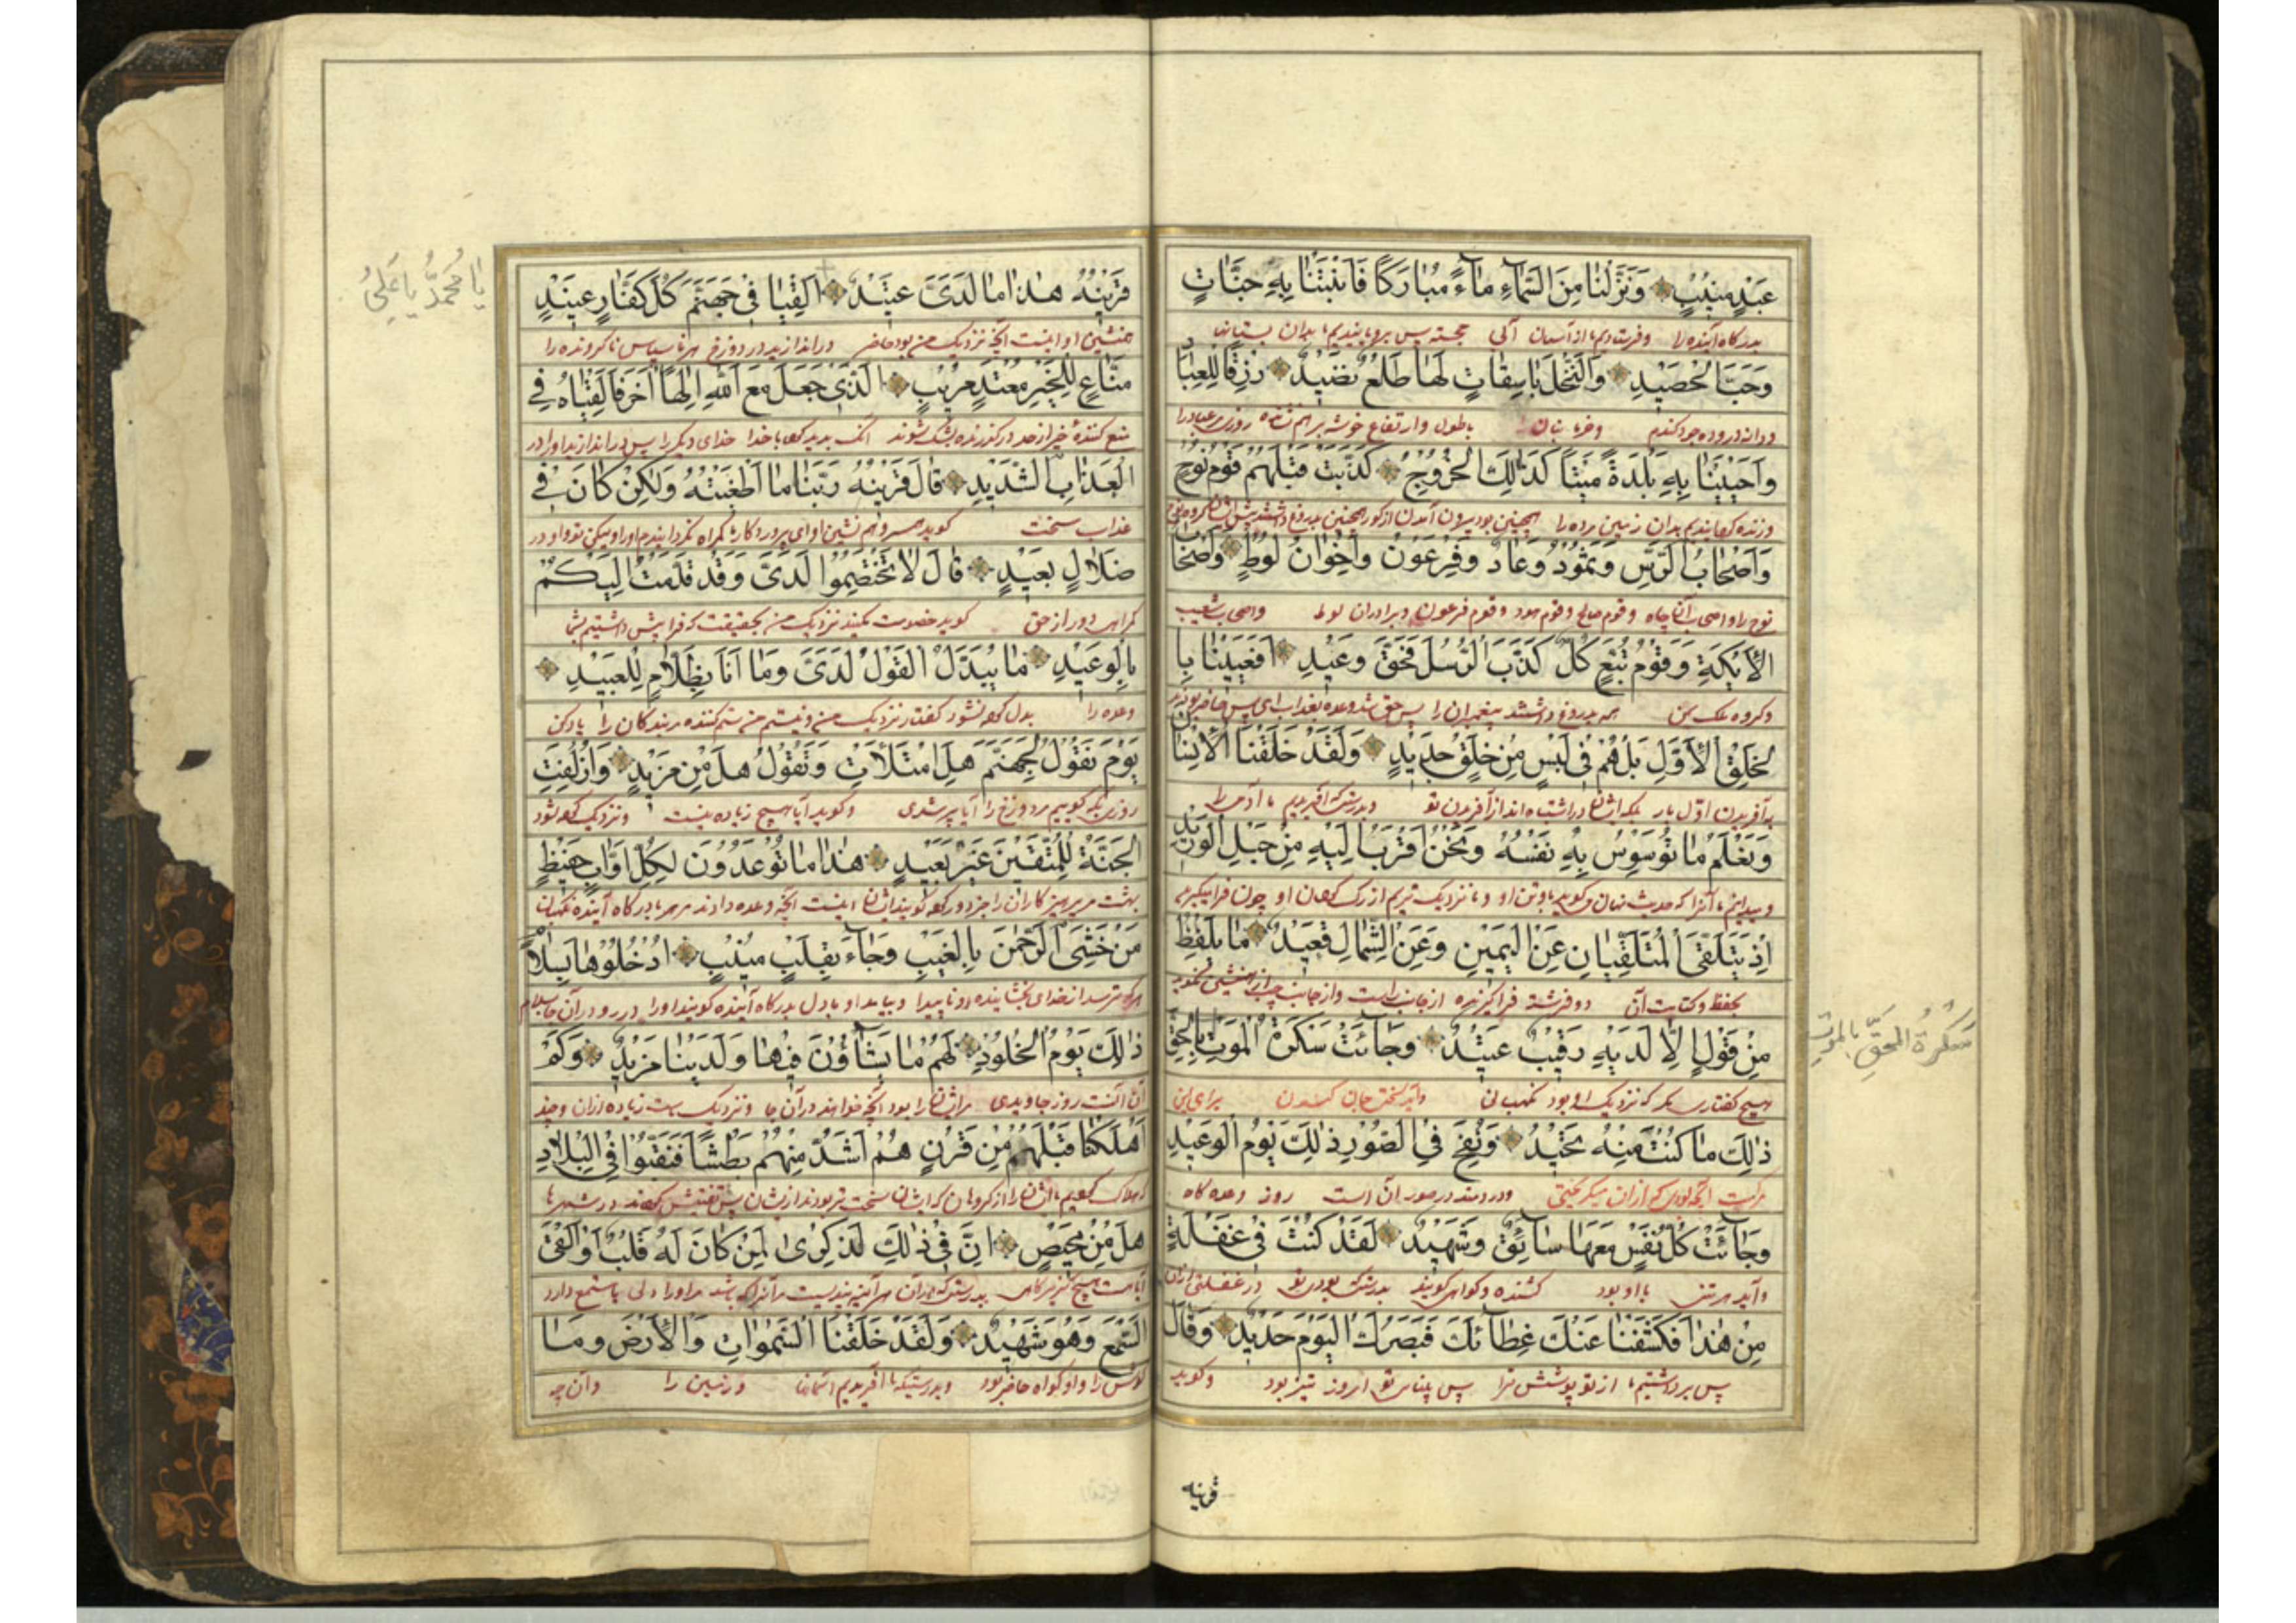 عَبْدٍ مُنِيبٍ وَنَزَّلْنَا مِنَ السَّمَاءِ مَاءً مُبَارَكًا فَاَنْبَتْنَا بِهِ جَنَّاتٍ
بدرگاه آینده را وفرستادیم ما از آسمان آبی خجسته پس برویانیدیم ما بدان بستانها
وَحَبَّ الْحَصِيدِ وَالنَّخْلَ بَاسِقَاتٍ لَهَا طَلْعٌ نَضِيدٌ رِزْقًا لِلْعِبَادِ
ودانه دروده جو و گندم وخرما بنان با طول وارتفاع خوشه برهم نشانده روزی مر عبادرا
وَاَحْيَيْنَا بِهِ بَلْدَةً مَيْتًا كَذٰلِكَ الْخُرُوجُ كَذَّبَتْ قَبْلَهُمْ قَوْمُ نُوحٍ
وزنده گردانیدیم بدان زمین مرده را همچنین بود بیرون آمدن از گور همچنین بدروغ داشتند پیش ازیشان گروه نوح
وَاَصْحَابُ الرَّسِّ وَثَمُودُ وَعَادٌ وَفِرْعَوْنُ وَاِخْوَانُ لُوطٍ وَاَصْحَابُ
نوح را واصحاب آن چاه وقوم صالح وقوم هود وقوم فرعون وبرادران لوط واصحاب شعیب
الْاَيْكَةِ وَقَوْمُ تُبَّعٍ كُلٌّ كَذَّبَ الرُّسُلَ فَحَقَّ وَعِيدِ اَفَعَيِينَا بِا
وگروه ملک یمن همه بدروغ داشتند پیغمبران را پس حق شد وعده بعذاب
لْخَلْقِ الْاَوَّلِ بَلْ هُمْ فِي لَبْسٍ مِنْ خَلْقٍ جَدِيدٍ وَلَقَدْ خَلَقْنَا الْاِنْسَانَ
به آفریدن اول بار بلکه ایشان در اشتباه اند از آفریدن نو وبدرستیکه آفریدیم ما آدمی را
وَنَعْلَمُ مَا تُوَسْوِسُ بِهِ نَفْسُهُ وَنَحْنُ اَقْرَبُ اِلَيْهِ مِنْ حَبْلِ الْوَرِيدِ
ومیدانیم ما آنرا که حدیث نهان میگوید با وتن او وما نزدیک تریم از رگ گردن او چون فرا میگیرند
اِذْ يَتَلَقَّى الْمُتَلَقِّيَانِ عَنِ الْيَمِينِ وَعَنِ الشِّمَالِ قَعِيدٌ مَا يَلْفِظُ
بحفظ وکتابت آن دو فرشته فرا گیرنده از جانب راست واز جانب چپ
مِنْ قَوْلٍ اِلَّا لَدَيْهِ رَقِيبٌ عَتِيدٌ وَجَائَتْ سَكْرَةُ الْمَوْتِ بِالْحَقِّ
هیچ گفتاری مگر که نزدیک او بود نگهبانی وآید سختی جان کندن برای این
ذٰلِكَ مَا كُنْتَ مِنْهُ تَحِيدُ وَنُفِخَ فِي الصُّورِ ذٰلِكَ يَوْمُ الْوَعِيدِ
ودر دمند در صور آن است روز وعده گاه
وَجَائَتْ كُلُّ نَفْسٍ مَعَهَا سَائِقٌ وَشَهِيدٌ لَقَدْ كُنْتَ فِي غَفْلَةٍ
وآید هر تنی با او بود کشنده وگواه گویند بدرستیکه بودی تو در غفلتی ازان
مِنْ هٰذَا فَكَشَفْنَا عَنْكَ غِطَائَكَ فَبَصَرُكَ الْيَوْمَ حَدِيدٌ وَقَالَ
پس برداشتیم ما از تو پوشش ترا پس بینائی تو امروز تیز بود وگوید
قرینه
سَكْرَةُ الْحَقِّ بِالْمَوْتِ
قَرِينُهُ هٰذَا مَا لَدَيَّ عَتِيدٌ اَلْقِيَا فِي جَهَنَّمَ كُلَّ كَفَّارٍ عَنِيدٍ
همنشین او اینست آنچه نزدیک من بود حاضر در اندازید در دوزخ هر ناسپاس ناگرونده را
مَنَّاعٍ لِلْخَيْرِ مُعْتَدٍ مُرِيبٍ الَّذِي جَعَلَ مَعَ اللّٰهِ اِلٰهًا اٰخَرَ فَاَلْقِيَاهُ فِي
منع کنندهٔ خیر از حد درگذرنده بشک شونده آنک بدید کرد با خدا خدای دیگر را پس در اندازید او را در
الْعَذَابِ الشَّدِيدِ قَالَ قَرِينُهُ رَبَّنَا مَا اَطْغَيْتُهُ وَلٰكِنْ كَانَ فِي
عذاب سخت گوید همنشین او ای پروردگار ما گمراه نگردانیدم او را ولیکن بود او در
ضَلَالٍ بَعِيدٍ قَالَ لَا تَخْتَصِمُوا لَدَيَّ وَقَدْ قَدَّمْتُ اِلَيْكُمْ
گمراهی دور از حق گوید خصومت مکنید نزدیک من بحقیقت که فرا پیش داشتیم بشما
بِالْوَعِيدِ مَا يُبَدَّلُ الْقَوْلُ لَدَيَّ وَمَا اَنَا بِظَلَّامٍ لِلْعَبِيدِ
وعده را بدل کرده نشود گفتار نزدیک من ونیستم من ستم کننده مر بندگان را یاد کن
يَوْمَ نَقُولُ لِجَهَنَّمَ هَلِ امْتَلَاْتِ وَتَقُولُ هَلْ مِنْ مَزِيدٍ وَاُزْلِفَتِ
روزی که گوییم مر دوزخ را آیا پر شدی وگوید آیا هیچ زیاده هست ونزدیک کرده شود
الْجَنَّةُ لِلْمُتَّقِينَ غَيْرَ بَعِيدٍ هٰذَا مَا تُوعَدُونَ لِكُلِّ اَوَّابٍ حَفِيظٍ
بهشت مر پرهیزکاران را جز دور گویند ایشانرا اینست آنچه وعده دادند مر هر با درگاه آینده نگهبان
مَنْ خَشِيَ الرَّحْمٰنَ بِالْغَيْبِ وَجَاءَ بِقَلْبٍ مُنِيبٍ ادْخُلُوهَا بِسَلَامٍ
هر که ترسد از خدای بخشاینده در ناپیدا وبیاید او با دل بدرگاه آینده گویند او را در رو در آن جا بسلام
ذٰلِكَ يَوْمُ الْخُلُودِ لَهُمْ مَا يَشَاؤُنَ فِيهَا وَلَدَيْنَا مَزِيدٌ وَكَمْ
آن است روز جاویدی مر ایشان را بود آنچه خواهند در آن جا ونزدیک ماست زیاده ازان وچند
اَهْلَكْنَا قَبْلَهُمْ مِنْ قَرْنٍ هُمْ اَشَدُّ مِنْهُمْ بَطْشًا فَنَقَّبُوا فِي الْبِلَادِ
هلاک کردیم ما پیش ایشان را از گروهان که ایشان سخت تر بودند ازیشان پس تفتیش کردند در شهرها
هَلْ مِنْ مَحِيصٍ اِنَّ فِي ذٰلِكَ لَذِكْرٰى لِمَنْ كَانَ لَهُ قَلْبٌ اَوْ اَلْقَى
آیا هست هیچ گریزگاهی بدرستیکه دران هر آینه پندیست مر آنرا که باشد مر او را دلی یا سمع دارد
السَّمْعَ وَهُوَ شَهِيدٌ وَلَقَدْ خَلَقْنَا السَّمٰوَاتِ وَالْاَرْضَ وَمَا
گوش را واو گواه حاضر بود وبدرستیکه ما آفریدیم آسمانها وزمین را وآن چه
يَا مُحَمَّدُ يَا عَلِيُ